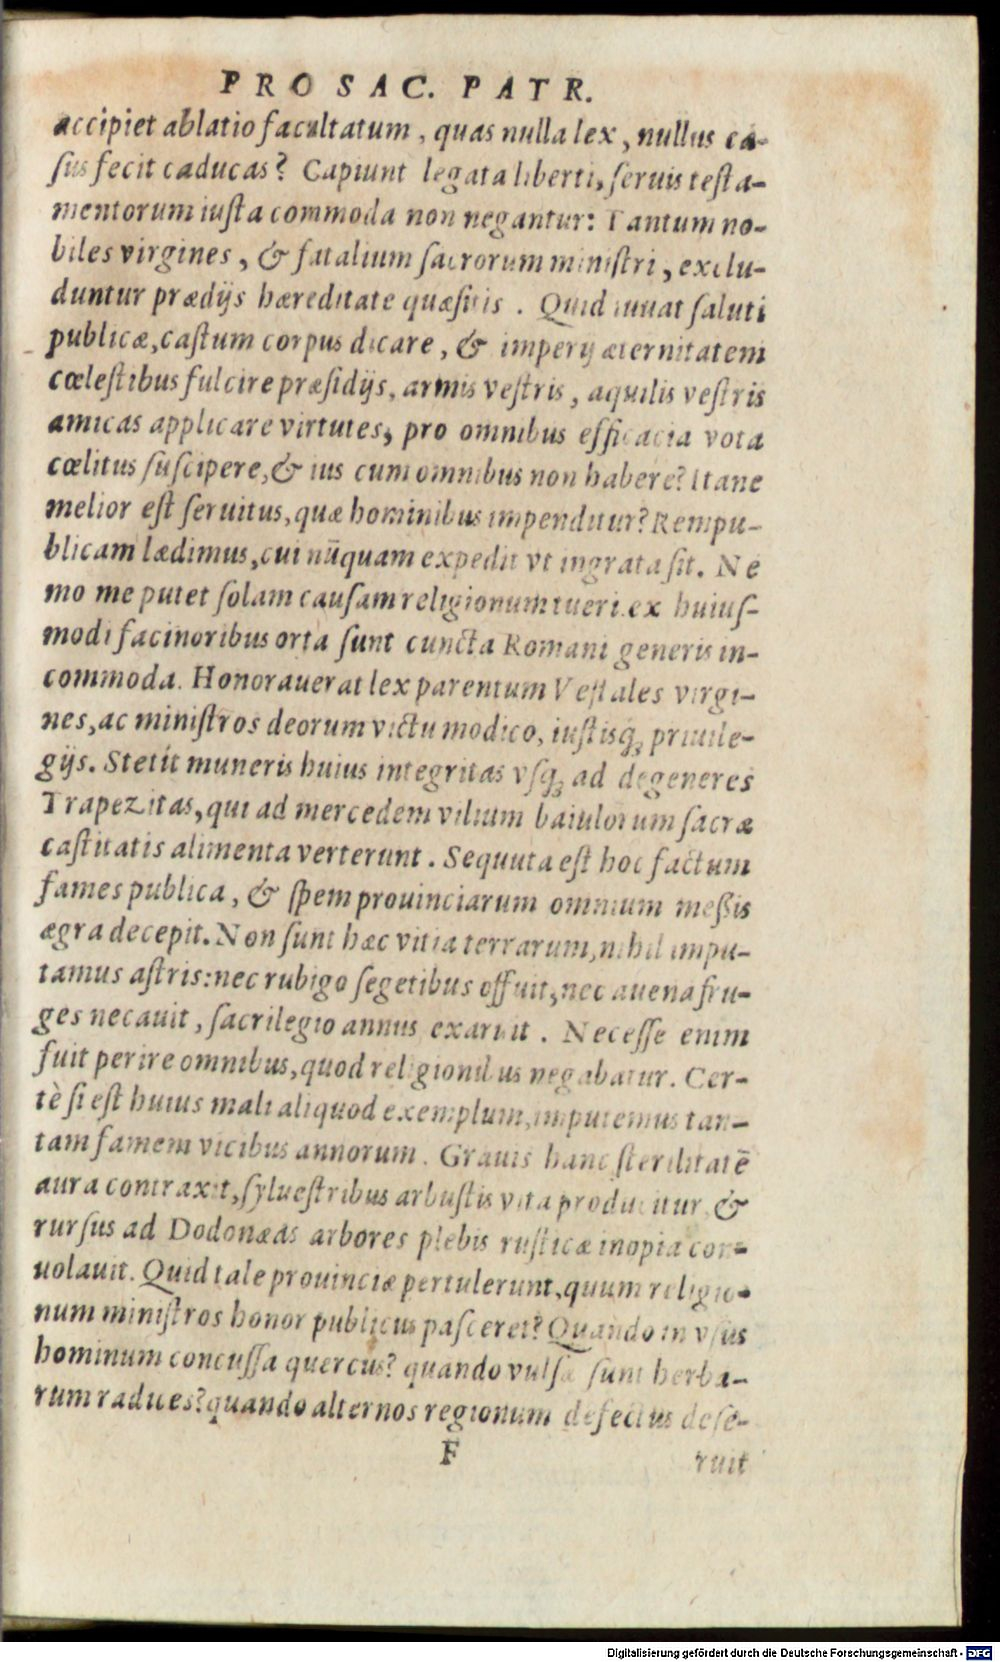 PRO SAC. PATR.
accipiet ablatio facultatum, quas nulla lex, nullus ca-
ſus fecit caducas? Capiunt legata liberti, ſeruis teſta-
mentorum iuſta commoda non negantur: Tantum no-
biles virgines, & fatalium ſacrorum miniſtri, exclu-
duntur prædijs hæreditate quæſitis. Quid iuuat ſaluti
publicæ, caſtum corpus dicare, & imperij æternitatem
cœleſtibus fulcire præſidijs, armis veſtris, aquilis veſtris
amicas applicare virtutes, pro omnibus efficacia vota
cœlitus ſuſcipere, & ius cum omnibus non habere? Itane
melior eſt ſeruitus, quæ hominibus impenditur? Rempu-
blicam lædimus, cui nūquam expedit vt ingrata ſit. Ne
mo me putet ſolam cauſam religionum tueri. ex huiuſ-
modi facinoribus orta ſunt cuncta Romani generis in-
commoda. Honorauerat lex parentum Veſtales virgi-
nes, ac miniſtros deorum victu modico, iuſtisq; priuile-
gijs. Stetit muneris huius integritas vſq; ad degeneres
Trapezitas, qui ad mercedem vilium baiulorum ſacræ
caſtitatis alimenta verterunt. Sequuta eſt hoc factum
fames publica, & ſpem prouinciarum omnium meßis
ægra decepit. Non ſunt hæc vitia terrarum, nihil impu-
tamus aſtris: nec rubigo ſegetibus offuit, nec auena fru-
ges necauit, ſacrilegio annus exaruit. Neceſſe enim
fuit perire omnibus, quod religionibus negabatur. Cer-
tè ſi eſt huius mali aliquod exemplum, imputemus tan-
tam famem vicibus annorum. Grauis hanc ſterilitatē
aura contraxit, ſylueſtribus arbuſtis vita producitur, &
rurſus ad Dodonæas arbores plebis ruſticæ inopia con-
uolauit. Quid tale prouinciæ pertulerunt, quum religio-
num miniſtros honor publicus paſceret? Quando in vſus
hominum concuſſa quercus? quando vulſæ ſunt herba-
rum radices? quando alternos regionum defectus deſe-
F
ruit
Digitalisierung gefördert durch die Deutsche Forschungsgemeinschaft - DFG